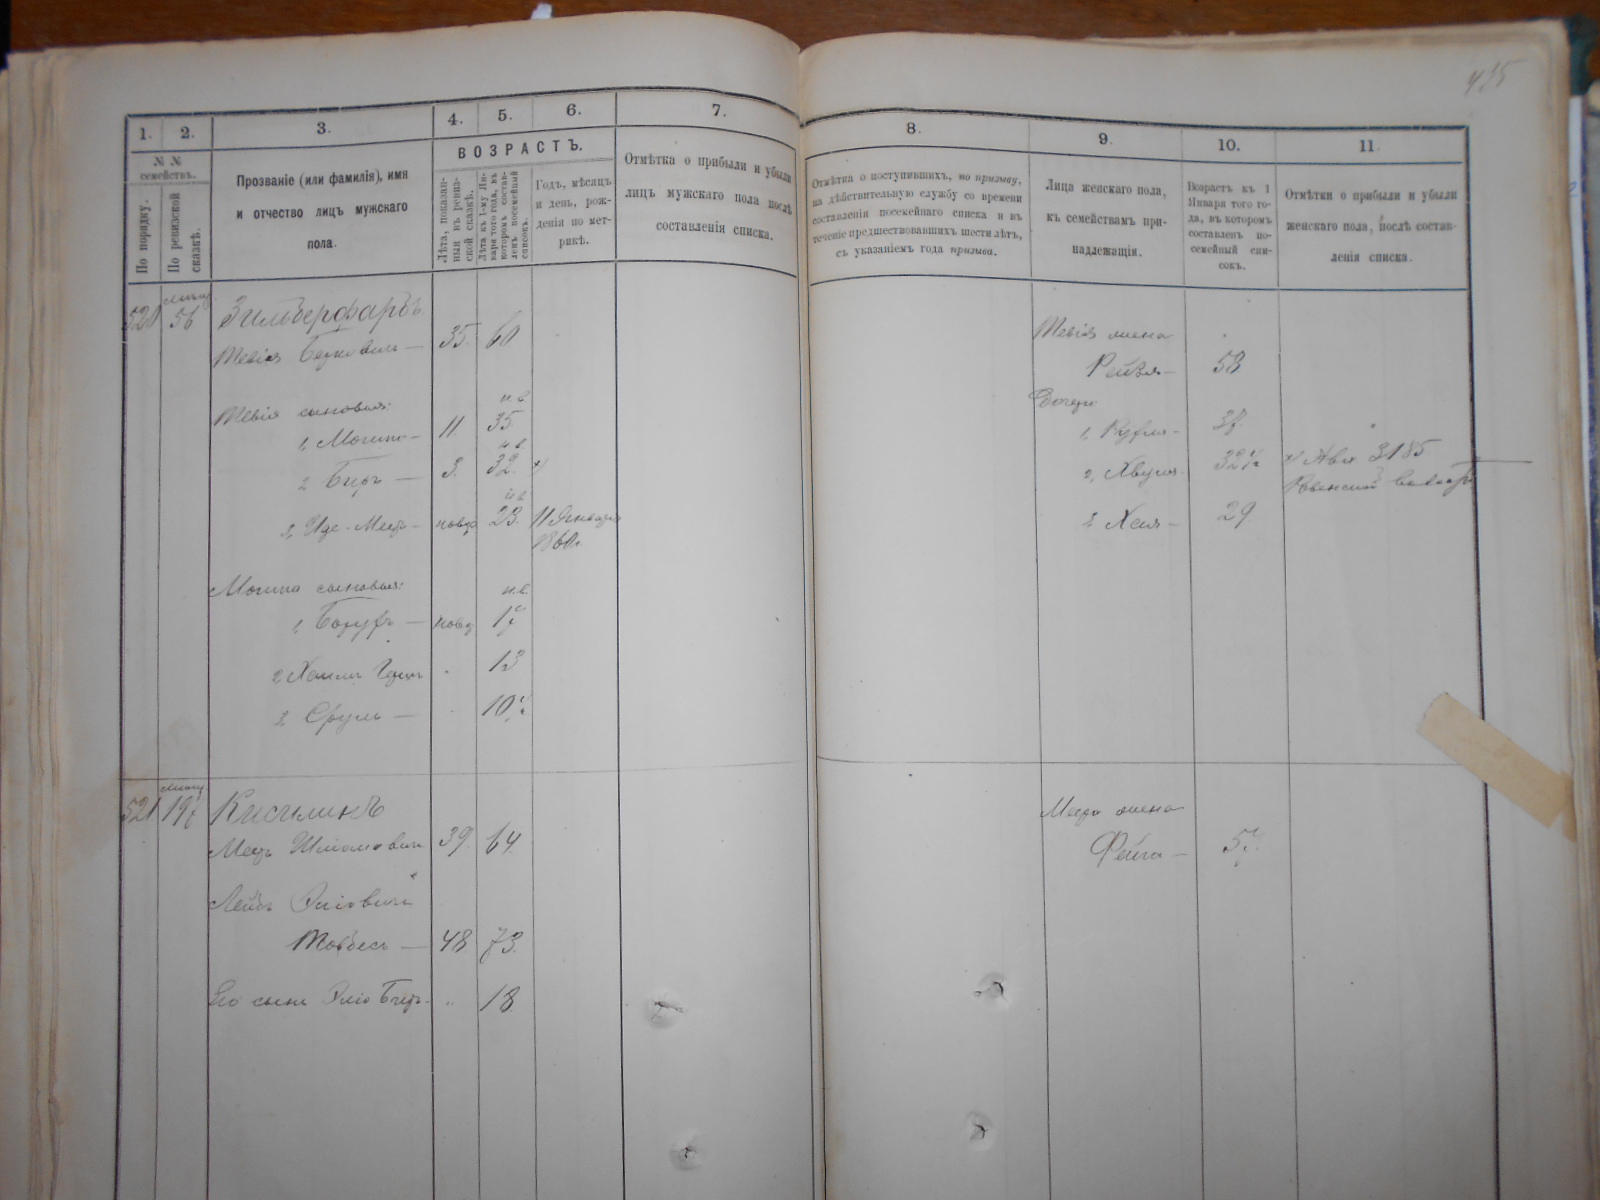 415
1.
2.
3.
4.
5.
6.
7.
8.
9.
10.
11
№ №
семействъ.
По порядку.
По ревизской
сказкѣ.
Прозваніе (или фамилія), имя
и отчество лицъ мужскаго
пола.
ВОЗРАСТЪ.
Лѣта, показан-
ныя въ реви-
зской сказкѣ.
Лѣта къ 1-му Ян-
варя того года, въ
которомъ состав-
ленъ посемейный
списокъ.
Годъ, мѣсяцъ
и день, рож-
денія по мет-
рикѣ.
Отмѣтка о прибыли и убыли
лицъ мужскаго пола послѣ
составленія списка.
Отмѣтка о поступившихъ, по призыву,
на дѣйствительную службу со времени
составленія посемейнаго списка и въ
теченіе предшествовавшихъ шести лѣтъ,
съ указаніемъ года призыва.
Лица женскаго пола,
къ семействамъ при-
надлежащія.
Возрастъ къ 1
Января того го-
да, въ которомъ
составленъ по-
семейный спи-
сокъ.
Отмѣтки о прибыли и убыли
женскаго пола, послѣ состав-
ленія списка.
520 56 Зильберфарбъ
Тевія Берковичъ — 35. 60
Тевія жена
Рейзя — 58
Тевія сыновья:
1, Мошко — 11. 35.
2 Беръ — 3. 32.
3, Иде-Мееръ — 23. 11 Января
1860г.
Дочери
1, 37.
2, 32½
3 Хася — 29
Мошко сыновья:
1, — 17
2 Хаимъ 13
3 Сруль — 10½
521 197 Кисиликъ
Мееръ Шліомовичъ 39. 64.
Меера жена
Фейга — 57.
Лейбъ Эліовичъ
— 48 73.
Его сынъ Эліо Беръ — „ 18.